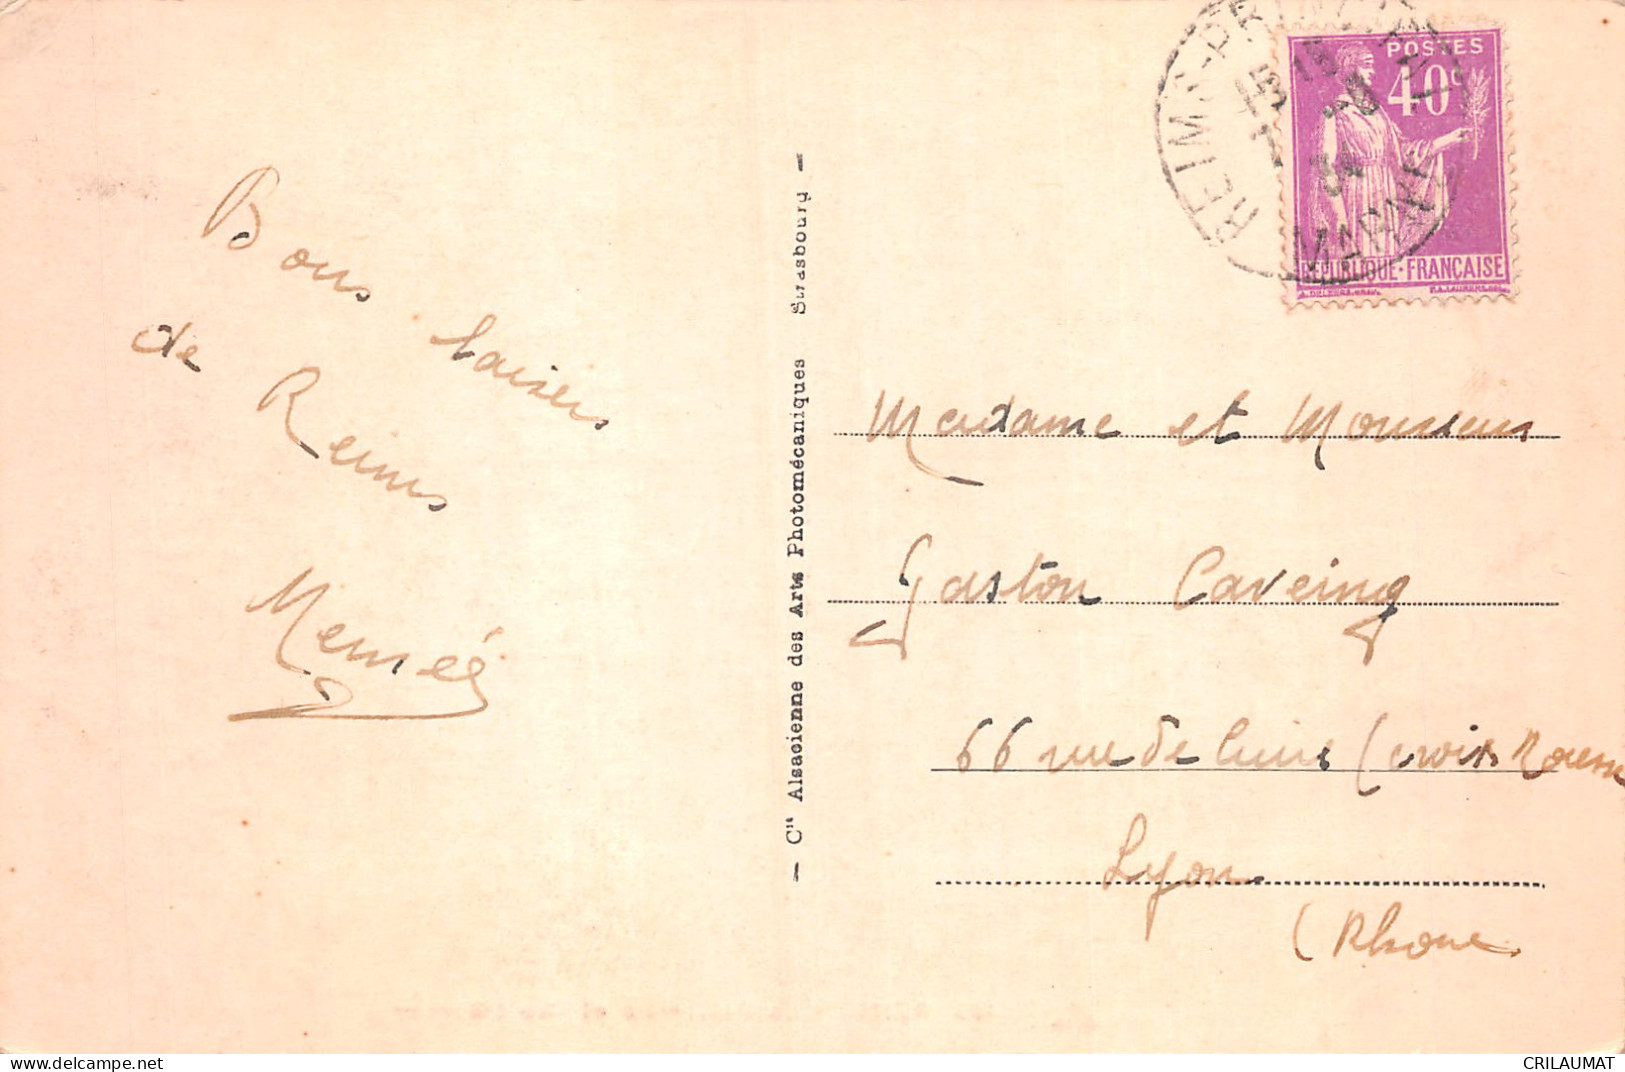 Bons baisers
de Reims
Memée
— Cie Alsacienne des Arts Photomécaniques Strasbourg —
REIMS-PRINCIPAL
MARNE
POSTES
40c
REPUBLIQUE·FRANÇAISE
Madame et Monsieur
Gaston Caveing
66 rue de Cuire (Croix Rousse
Lyon
(Rhone
delcampe.net
CRILAUMAT